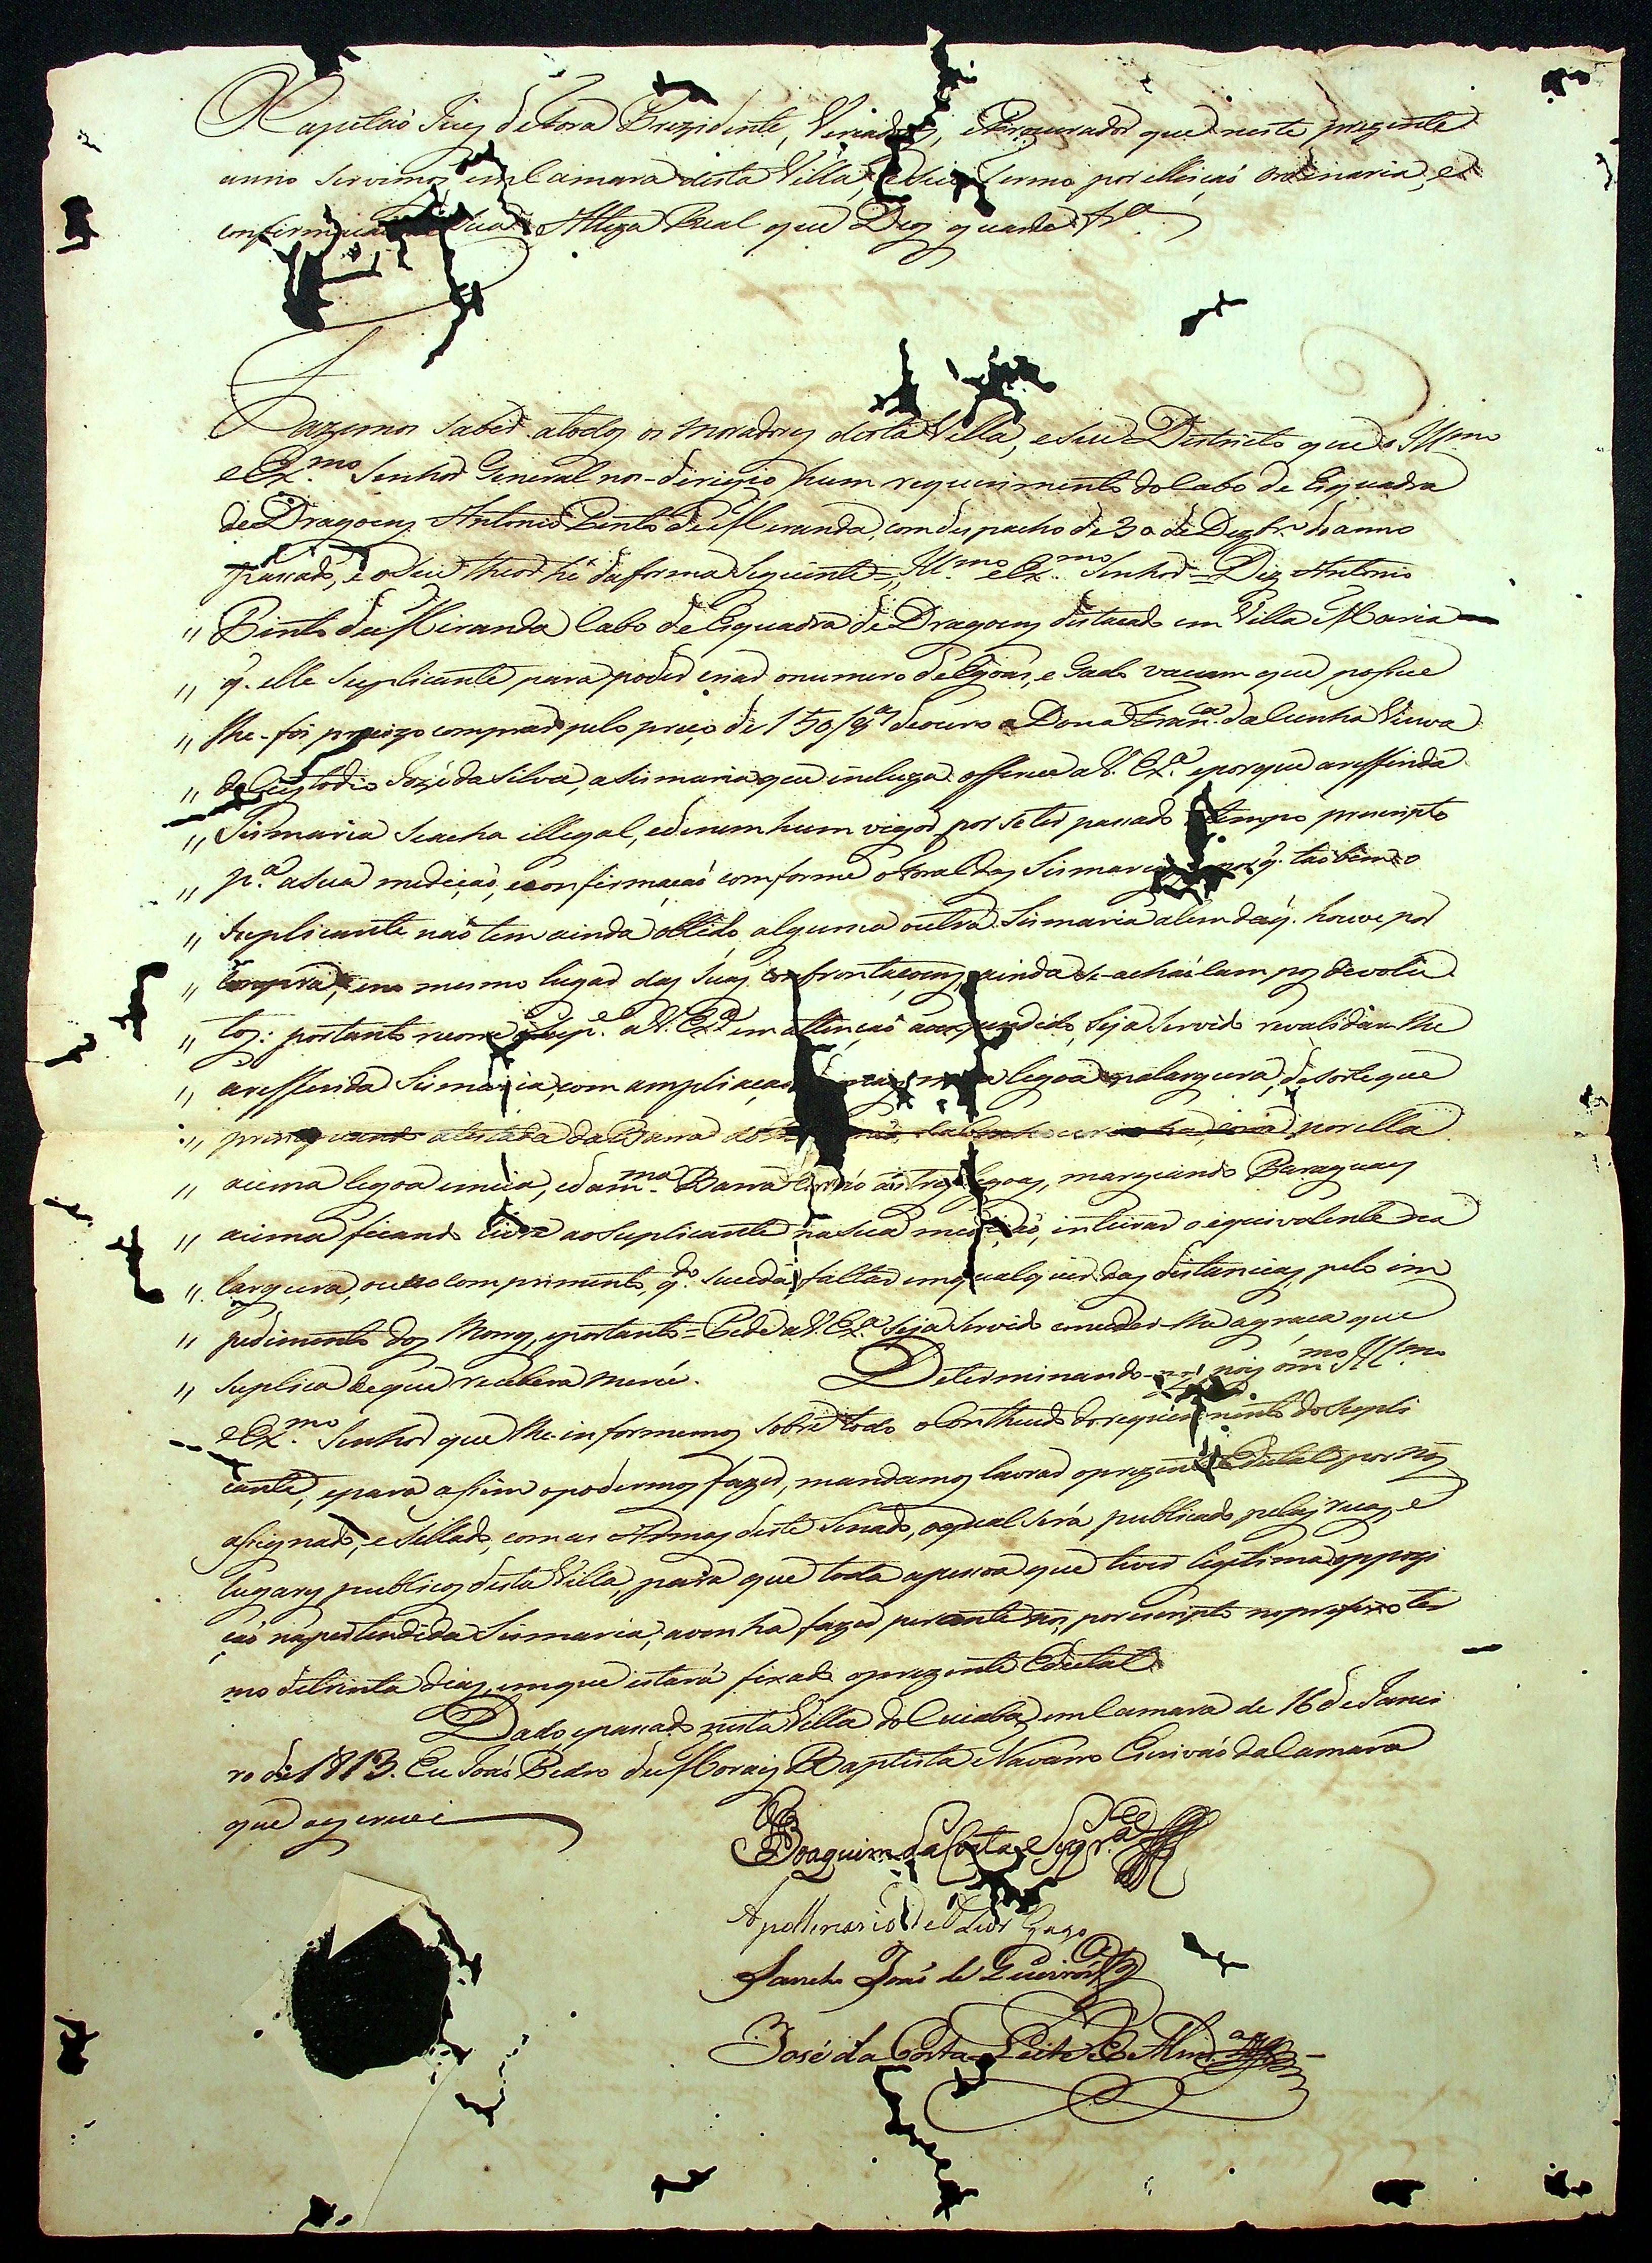 O Capitaõ Juiz de Fora Prezidente, Veriadores, e Procurador que neste prezente
anno servimos em Camara desta Villa, e seu Termo por elleicaõ Ordinaria, e
confirmacaõ Sua Alteza Real que Deos guarde &.ª
Fazemos saber a todos os Moradores desta Villa, e seu Destricto que o Ill.mo
e Ex.mo Senhor General nos-dirigio hum requerimento do Cabo de Esquadra
de Dragoens Antonio Pinto de Miranda, com despacho de 30 de Dezbr.º do anno
passado, e o seu theor hé da forma seguinte = Ill.mo e Ex.mo Senhor = Diz Antonio
" Pinto de Miranda Cabo de Esquadra de Dragoens destacado em Villa Maria
" q. elle Suplicante para poder criar o numero de Egoas, e Gado vacum que possue
" lhe-foi precizo comprar pelo preço de 150/8.as de ouro a Dona Fran.ca da Cunha Viuva
" de Custodio Jozé da Silva, a sismaria que incluza offerece a V. Ex.ª e porque a refferida
" Sismaria se acha illegal, e de nenhum vigor por se ter passado tempo prescripto
" p.ª a sua mediçaõ, e confirmaçaõ comforme o Foral das Sismarias q. taõ bem o
" Suplicante naõ tem ainda obtido alguma outra Sismaria alem da q. houve por
" Compra, e no mesmo lugar das suas confrontaçoens, ainda se-achaõ Campos devolu
" tos: portanto recorre o Sup.e a V. Ex.ª em attençaõ ao expendido, seja servido revalidar-lhe
" a refferida Sismaria, com ampliaçaõ legoa na largura, de sorte que
" a testada da Barra por ella
" acima legoa e meia, e da m.ma Barra as tres legoas, margeando Paraguay
" acima ficando livre ao Suplicante na sua mediçaõ, inteirar o equivalente na
" largura, ou no comprimento, q.do suceda faltar em qualquer das distancias, pelo im
" pedimento dos Morros, e portanto = Pede a V. Ex.ª seja servido conceder-lhe a graca que
" suplica de que recebera merce. Determinando-nos pois o m.mo Ill.mo
e Ex.mo Senhor que lhe-informemos sobre todo o Contheudo do requerimento do Supli
cante, e para assim o podermos fazer, mandamos lavrar o prezente Edital por nós
assignado, e sellado, com as Armas deste Senado, o qual será publicado pelas ruas, e
lugares publicos desta Villa, para que toda a pessoa que tiver legitima oppozi
çaõ na pertendida Sismaria, a venha fazer perante nós, por escripto no prefixo ter
mo de trinta dias, em que estará fixado o prezente Edital.
Dado e passado nesta Villa do Cuiabá em Camara de 16 de Janei
ro de 1813. Eu Joaõ Pedro de Moraes Baptista Navarro Escrivaõ da Camara
que o escrevi
Joaquim da Costa e Sigr.ª
Apollinario de
Sancho Joaõ de Queirós
José da Costa Leite e Alm.da